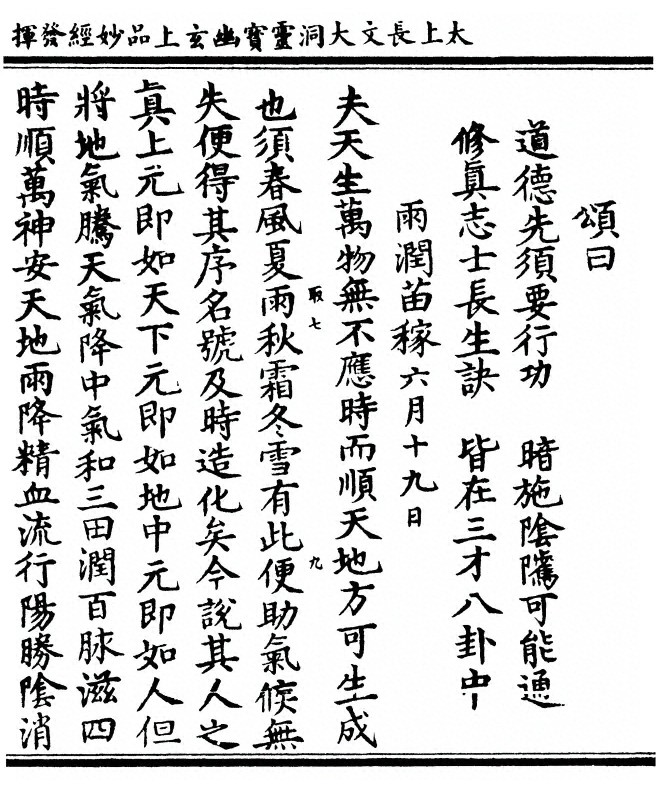 太上長文大洞靈寶幽玄上品妙經發揮
頌曰
道德先須要行功　暗施陰隲可能通
修眞志士長生訣　皆在三才八卦中
雨潤苗稼六月十九日
夫天生萬物無不應時而順天地方可生成
也須春風夏雨秋霜冬雪有此便助氣候無
取七
九
失便得其序名號及時造化矣今說其人之
眞上元即如天下元即如地中元即如人但
將地氣騰天氣降中氣和三田潤百脉滋四
時順萬神安天地雨降精血流行陽勝陰消